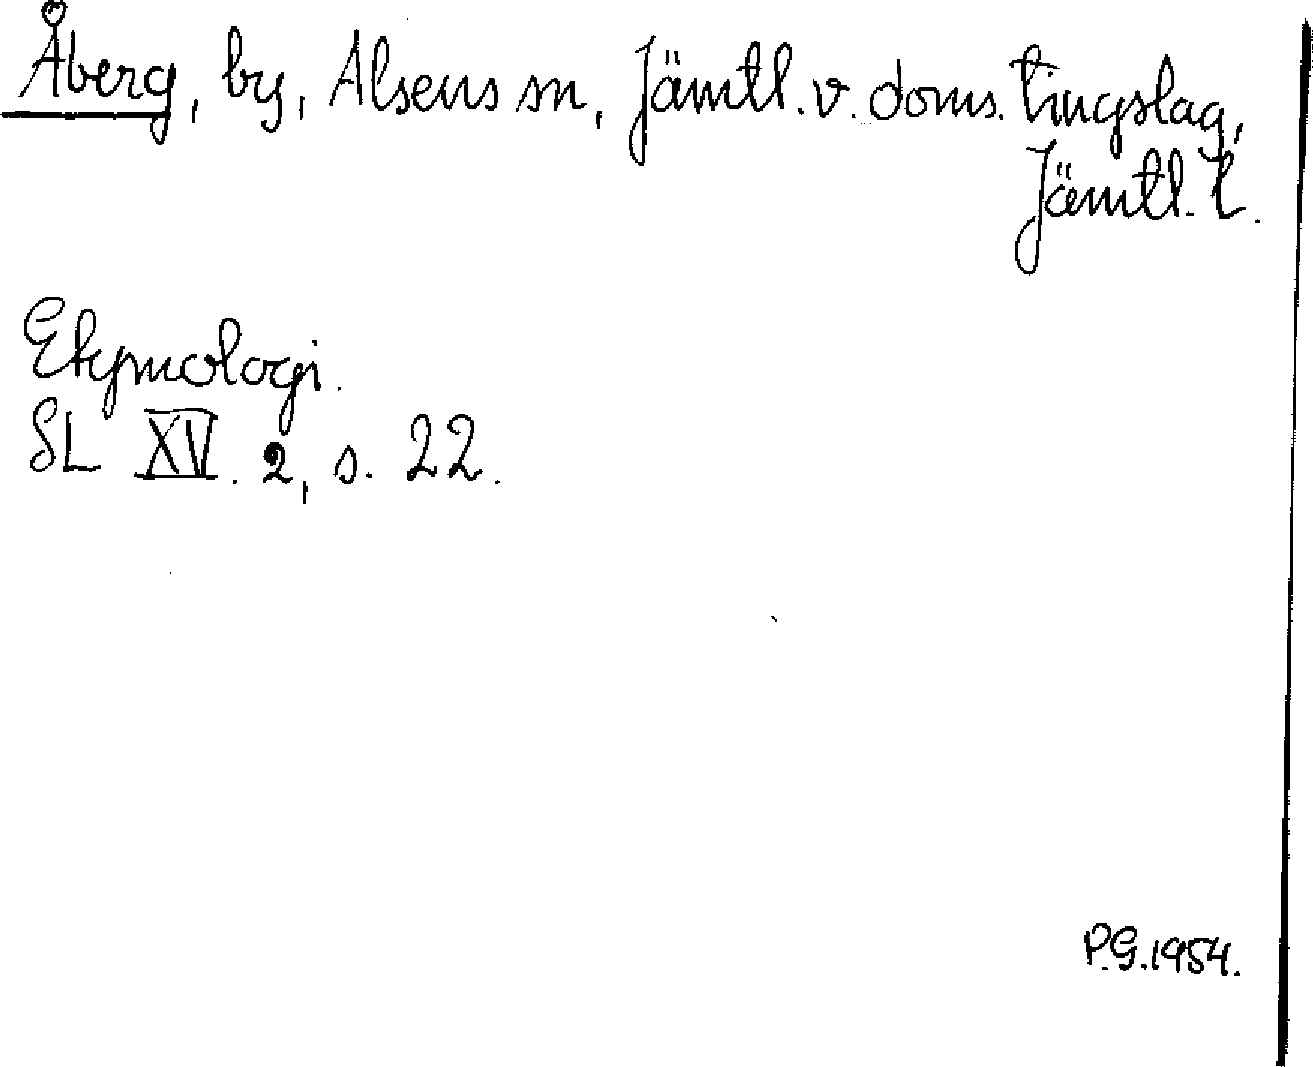 Åberg, by, Alsens sn, Jämtl. v. doms. tingslag,
Jämtl. l.
Etymologi.
SL XV. 2, s. 22.
P.G. 1954.